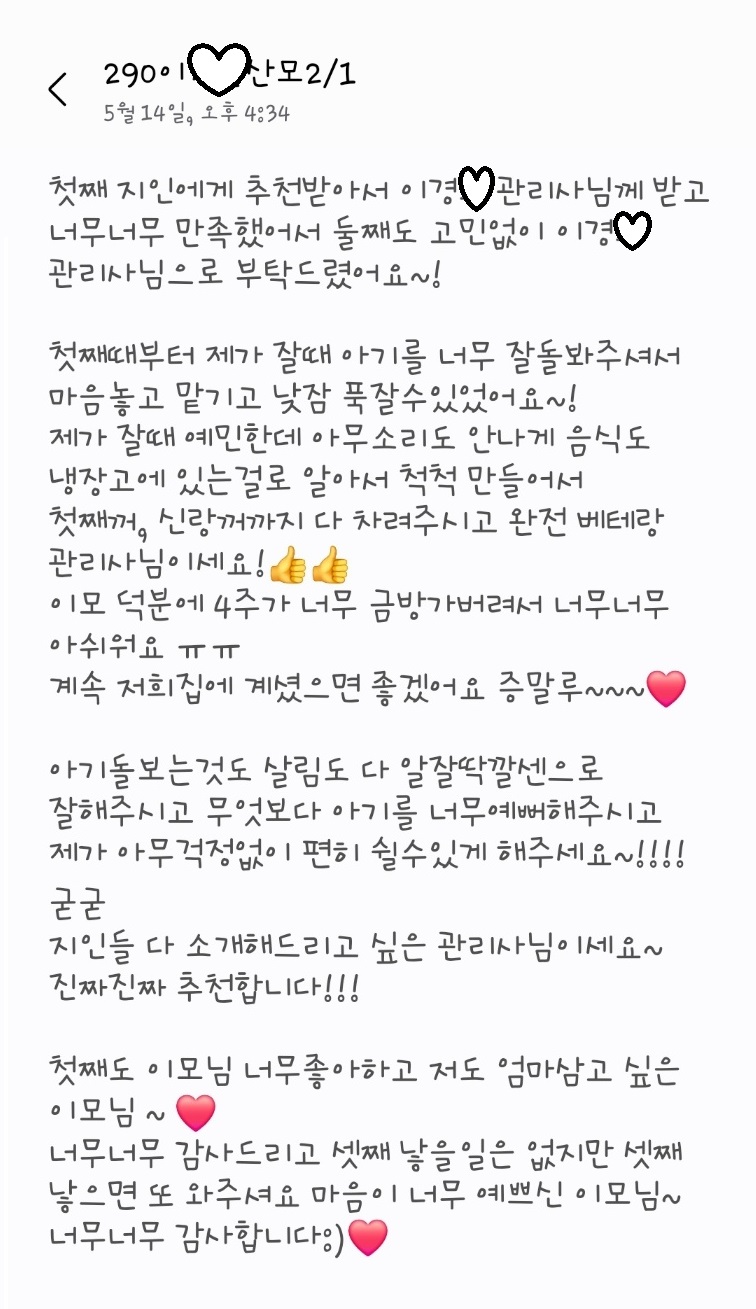 290이 산모2/1
5월 14일, 오후 4:34
첫째 지인에게 추천받아서 이경 관리사님께 받고
너무너무 만족했어서 둘째도 고민없이 이경
관리사님으로 부탁드렸어요~!
첫째때부터 제가 잘때 아기를 너무 잘돌봐주셔서
마음놓고 맡기고 낮잠 푹잘수있었어요~!
제가 잘때 예민한데 아무소리도 안나게 음식도
냉장고에 있는걸로 알아서 척척 만들어서
첫째꺼, 신랑꺼까지 다 차려주시고 완전 베테랑
관리사님이세요!👍👍
이모 덕분에 4주가 너무 금방가버려서 너무너무
아쉬워요 ㅠㅠ
계속 저희집에 계셨으면 좋겠어요 증말루~~~❤️
아기돌보는것도 살림도 다 알잘딱깔센으로
잘해주시고 무엇보다 아기를 너무예뻐해주시고
제가 아무걱정없이 편히 쉴수있게 해주세요~!!!!
굳굳
지인들 다 소개해드리고 싶은 관리사님이세요~
진짜진짜 추천합니다!!!
첫째도 이모님 너무좋아하고 저도 엄마삼고 싶은
이모님 ~ ❤️
너무너무 감사드리고 셋째 낳을일은 없지만 셋째
낳으면 또 와주셔요 마음이 너무 예쁘신 이모님~
너무너무 감사합니다:)❤️